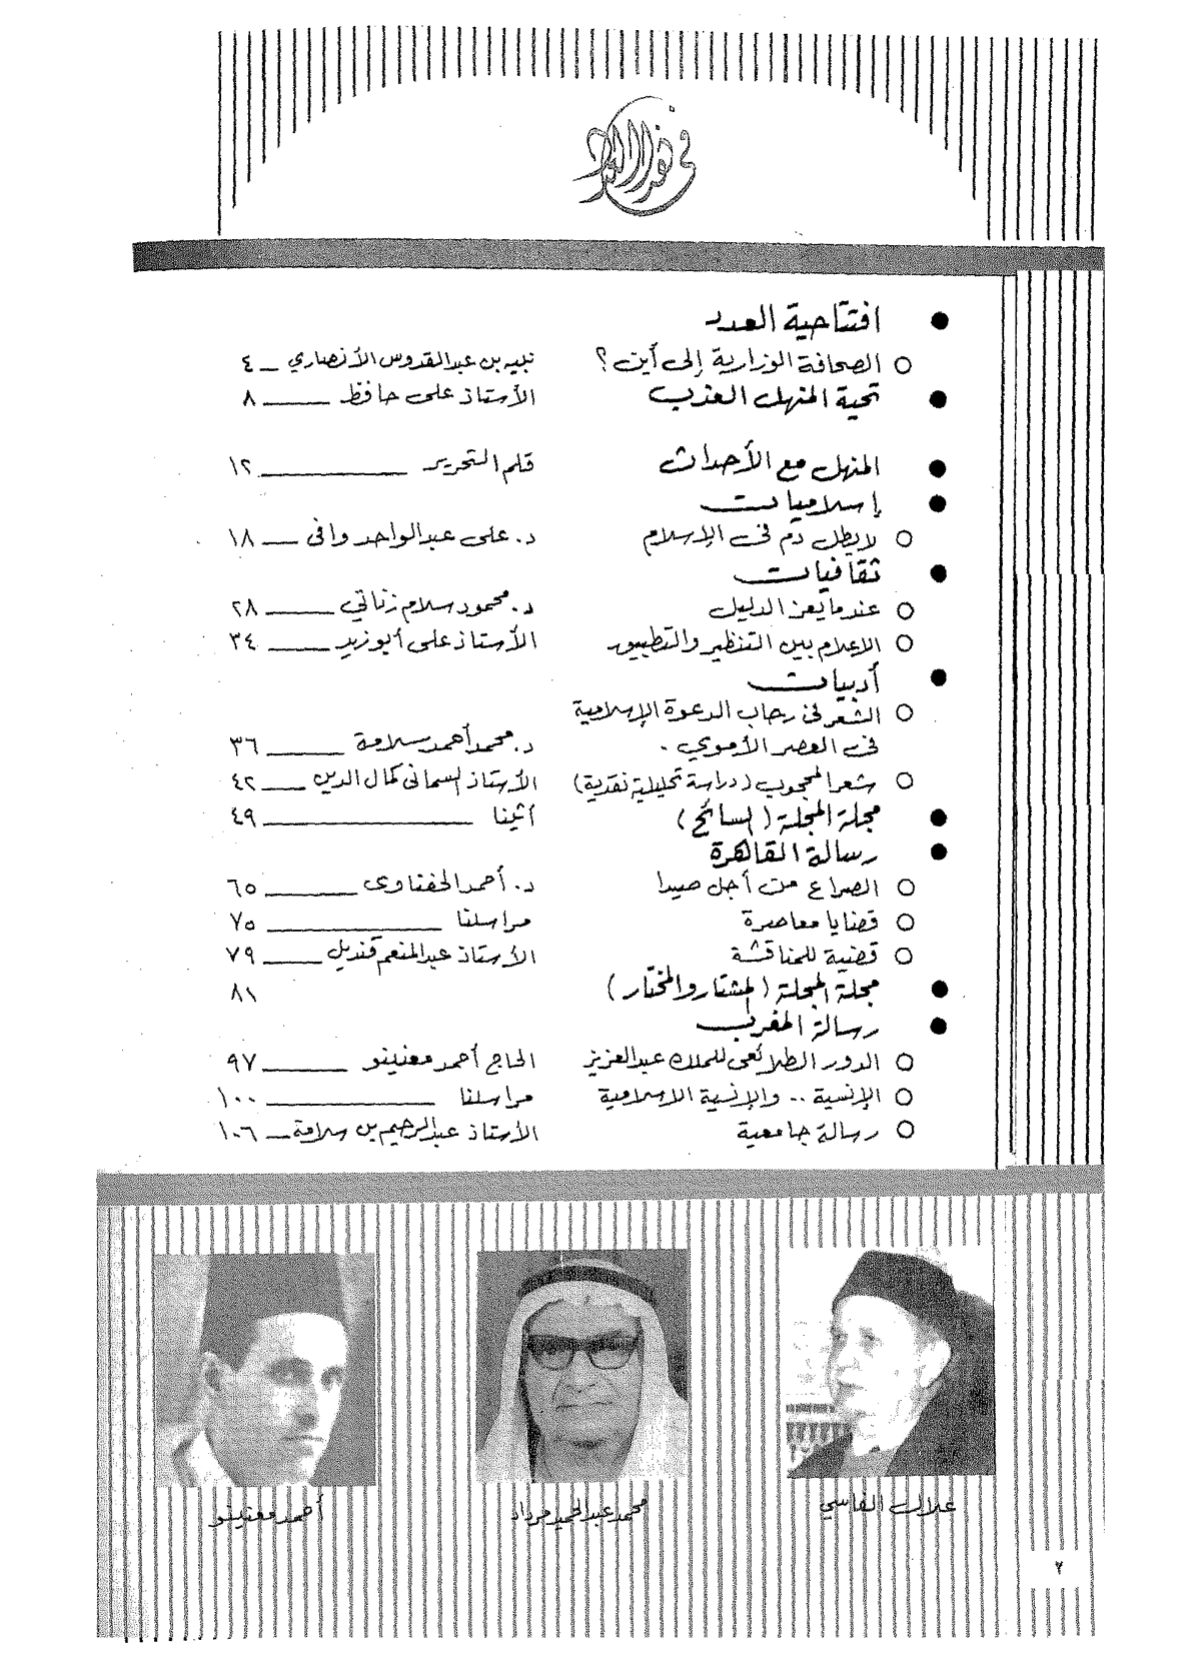 في هذا العدد
● افتتاحية العدد
○ الصحافة الوزارية إلى أين؟ نبيه بن عبدالقدوس الأنصاري ـ ٤
● تحية المنهل العذب الأستاذ على حافظ ــــ ٨
● المنهل مع الأحداث قلم التحرير ــــ ١٢
● إسلاميات
○ لا يطل دم فى الإسلام د. على عبدالواحد وافى ــ ١٨
● ثقافيات
○ عندما يعز الدليل د. محمود سلام زناتي ــــ ٢٨
○ الإعلام بين التنظير والتطبيق الأستاذ على أبوزيد ــــ ٣٤
● أدبيات
○ الشعر فى رحاب الدعوة الإسلامية
فى العصر الأموي. د. محمد أحمد سلامة ــــ ٣٦
○ شعر المحجوب (دراسة تحليلية نقدية) الأستاذ السمانى كمال الدين ــ ٤٢
● مجلة المجلة (السائح) أثينا ــــ ٤٩
● رسالة القاهرة
○ الصراع من أجل صيدا د. أحمد الحفناوى ــــ ٦٥
○ قضايا معاصرة مراسلنا ــــ ٧٥
○ قضية للمناقشة الأستاذ عبدالمنعم قنديل ــــ ٧٩
● مجلة المجلة (المشتار والمختار) ٨١
● رسالة المغرب
○ الدور الطلائعى للملك عبدالعزيز الحاج أحمد معنينو ــــ ٩٧
○ الإنسية .. والإنسية الاسلامية مراسلنا ــــ ١٠٠
○ رسالة جامعية الأستاذ عبدالرحيم بن سلامة ــ ١٠٦
علال الفاسي
محمد عبدالحميد مرداد
أحمد معنينو
٧